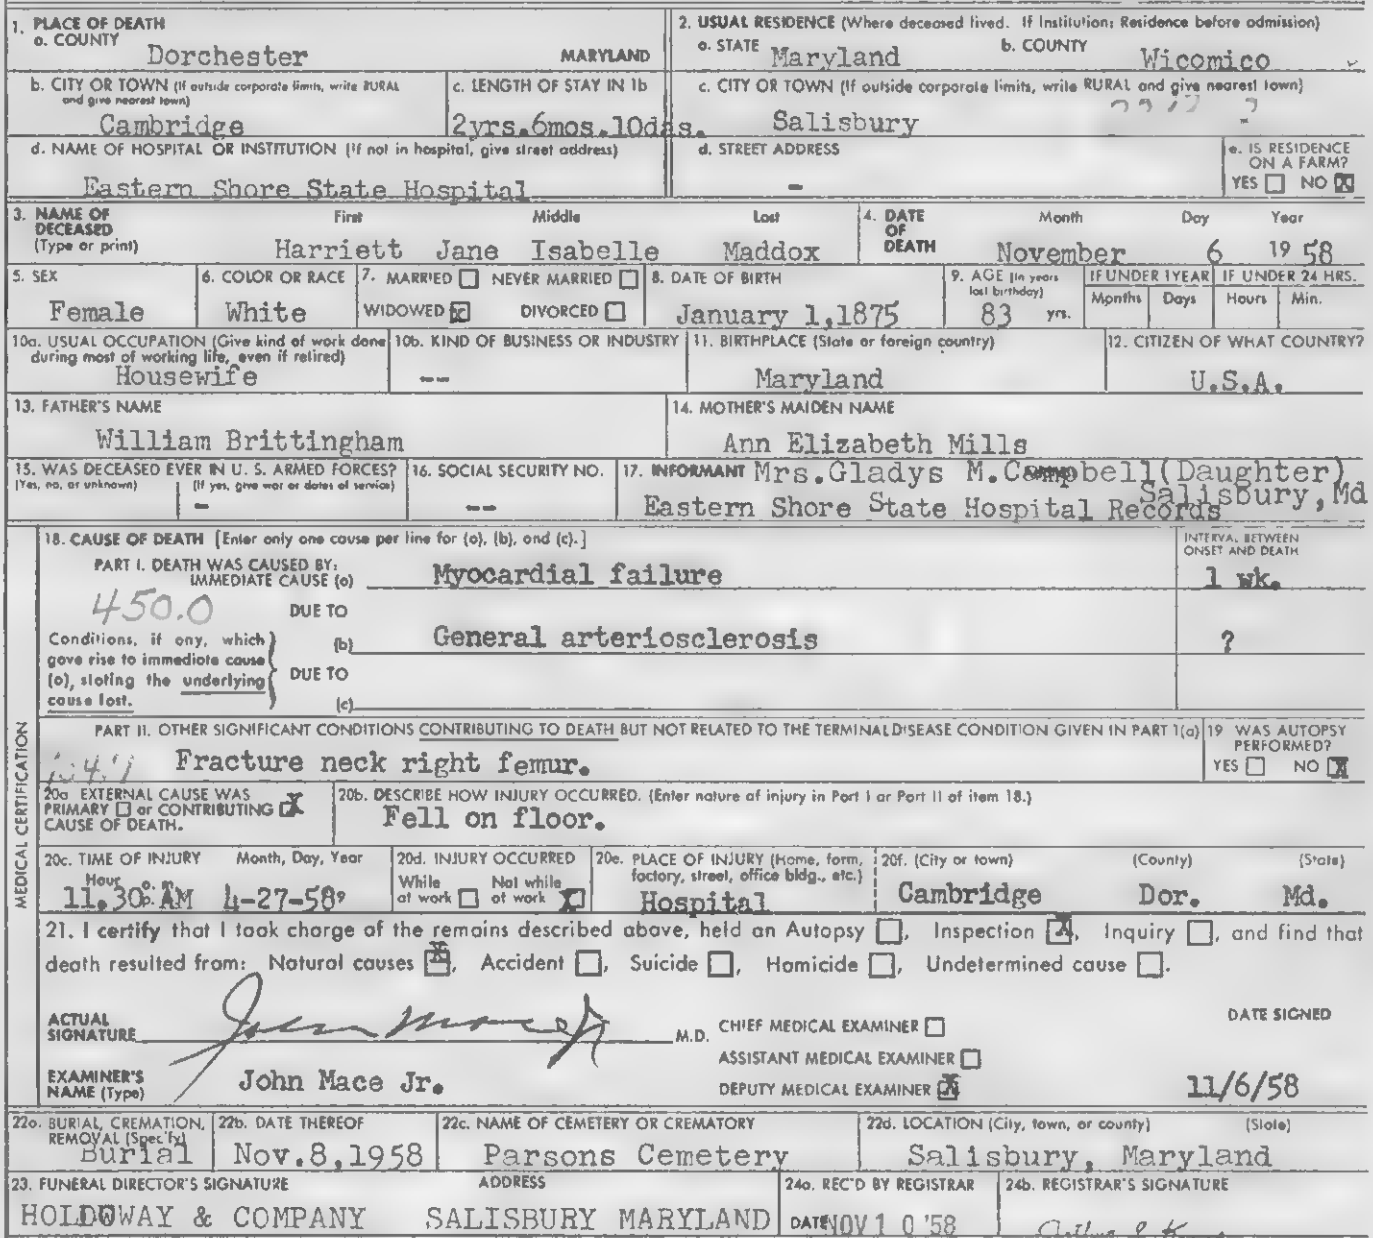 1. PLACE OF DEATH
a. COUNTY
Dorchester MARYLAND
2. USUAL RESIDENCE (Where deceased lived. If Institution: Residence before admission)
a. STATE Maryland b. COUNTY Wicomico
b. CITY OR TOWN (If outside corporate limits, write RURAL and give nearest town)
Cambridge
c. LENGTH OF STAY IN 1b
2yrs.6mos.10das.
c. CITY OR TOWN (If outside corporate limits, write RURAL and give nearest town)
Salisbury
d. NAME OF HOSPITAL OR INSTITUTION (If not in hospital, give street address)
Eastern Shore State Hospital
d. STREET ADDRESS
-
e. IS RESIDENCE ON A FARM?
YES NO X
3. NAME OF DECEASED (Type or print)
First Middle Last
Harriett Jane Isabelle Maddox
4. DATE OF DEATH
Month Day Year
November 6 19 58
5. SEX
Female
6. COLOR OR RACE
White
7. MARRIED NEVER MARRIED
WIDOWED X DIVORCED
8. DATE OF BIRTH
January 1,1875
9. AGE (In years last birthday)
83 yrs.
IF UNDER 1 YEAR
Months Days
IF UNDER 24 HRS.
Hours Min.
10a. USUAL OCCUPATION (Give kind of work done during most of working life, even if retired)
Housewife
10b. KIND OF BUSINESS OR INDUSTRY
--
11. BIRTHPLACE (State or foreign country)
Maryland
12. CITIZEN OF WHAT COUNTRY?
U.S.A.
13. FATHER'S NAME
William Brittingham
14. MOTHER'S MAIDEN NAME
Ann Elizabeth Mills
15. WAS DECEASED EVER IN U. S. ARMED FORCES?
(Yes, no, or unknown) (If yes, give war or dates of service)
-
16. SOCIAL SECURITY NO.
--
17. INFORMANT Mrs.Gladys M.Campbell(Daughter)
Salisbury,Md
Eastern Shore State Hospital Records
MEDICAL CERTIFICATION
18. CAUSE OF DEATH [Enter only one cause per line for (a), (b), and (c).]
INTERVAL BETWEEN ONSET AND DEATH
PART I. DEATH WAS CAUSED BY:
IMMEDIATE CAUSE (a) Myocardial failure 1 wk.
450.0 DUE TO
Conditions, if any, which gave rise to immediate cause (a), stating the underlying cause last.
(b) General arteriosclerosis ?
DUE TO
(c)
PART II. OTHER SIGNIFICANT CONDITIONS CONTRIBUTING TO DEATH BUT NOT RELATED TO THE TERMINAL DISEASE CONDITION GIVEN IN PART 1(a)
Fracture neck right femur.
19 WAS AUTOPSY PERFORMED?
YES NO X
20a EXTERNAL CAUSE WAS
PRIMARY or CONTRIBUTING X
CAUSE OF DEATH.
20b. DESCRIBE HOW INJURY OCCURRED. (Enter nature of injury in Part I or Part II of item 18.)
Fell on floor.
20c. TIME OF INJURY Month, Day, Year
Hour
11.30 AM 4-27-58
20d. INJURY OCCURRED
While at work Not while at work X
20e. PLACE OF INJURY (Home, form, factory, street, office bldg., etc.)
Hospital
20f. (City or town) (County) (State)
Cambridge Dor. Md.
21. I certify that I took charge of the remains described above, held an Autopsy , Inspection X, Inquiry , and find that
death resulted from: Natural causes X, Accident , Suicide , Homicide , Undetermined cause .
ACTUAL SIGNATURE John Mace Jr M.D.
CHIEF MEDICAL EXAMINER
ASSISTANT MEDICAL EXAMINER
DEPUTY MEDICAL EXAMINER X
DATE SIGNED
11/6/58
EXAMINER'S NAME (Type) John Mace Jr.
22a. BURIAL, CREMATION, REMOVAL (Specify)
Burial
22b. DATE THEREOF
Nov.8,1958
22c. NAME OF CEMETERY OR CREMATORY
Parsons Cemetery
22d. LOCATION (City, town, or county) (State)
Salisbury, Maryland
23. FUNERAL DIRECTOR'S SIGNATURE ADDRESS
HOLLOWAY & COMPANY SALISBURY MARYLAND
24a. REC'D BY REGISTRAR
DATE NOV 1 0 '58
24b. REGISTRAR'S SIGNATURE